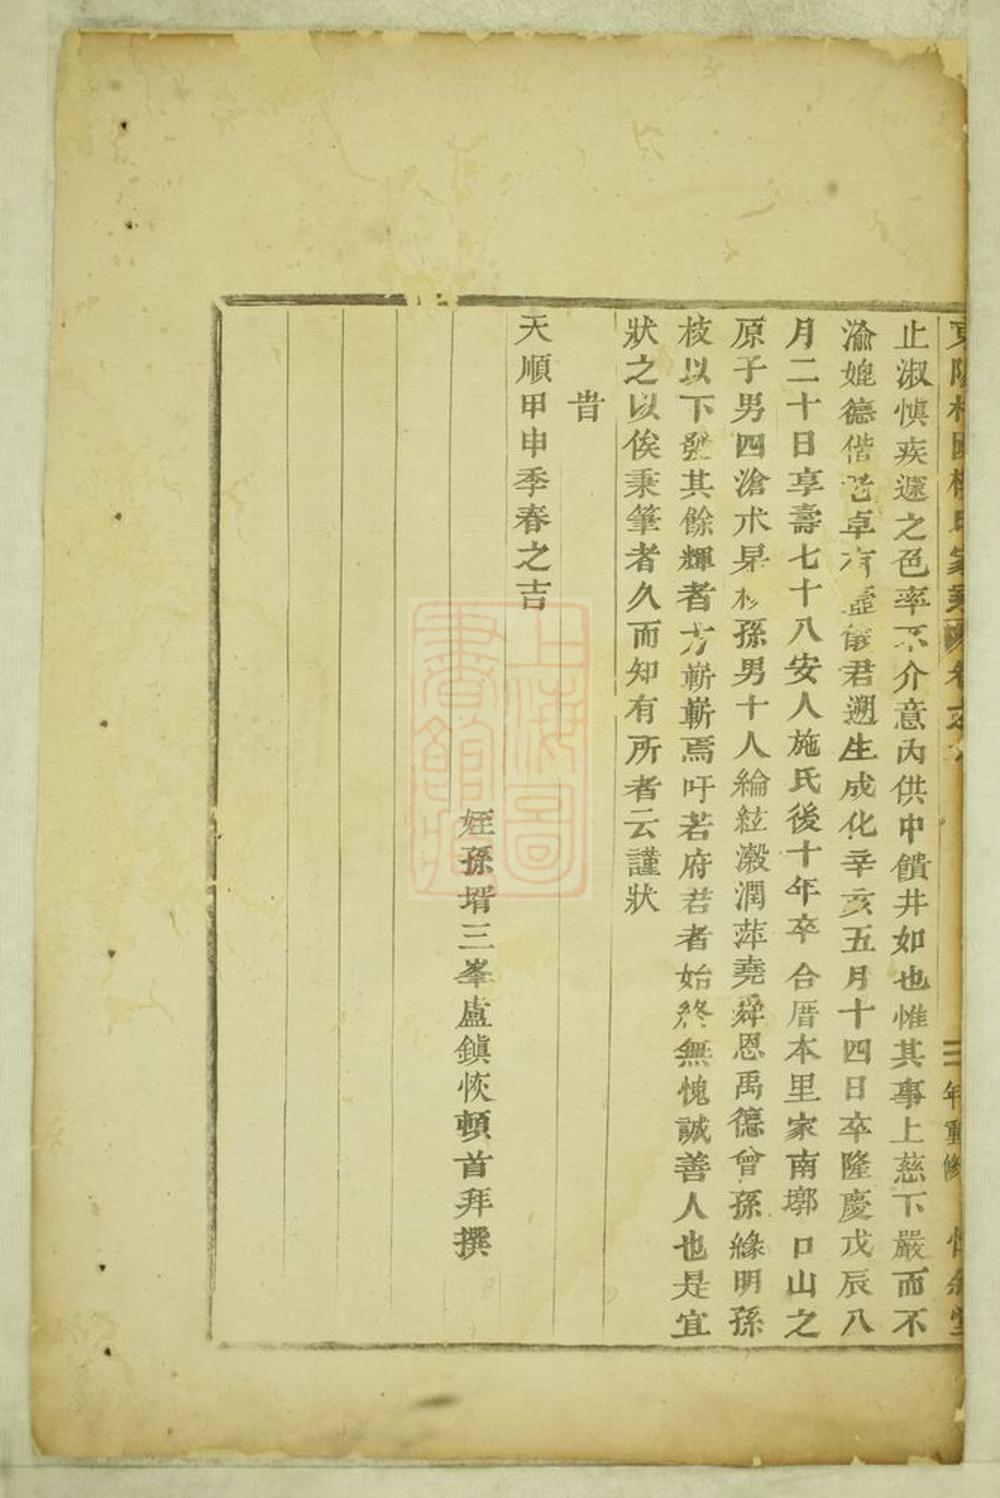 止淑慎疾遽之色率不介意內供中饋井如也惟其事上慈下嚴而不
渝媲德偕老卓有壼儀君遡生成化辛亥五月十四日卒隆慶戊辰八
月二十日享壽七十八安人施氏後十年卒合厝本里家南墎口山之
原子男四滄朮杲杉孫男十人綸紘瀔潤萍堯舜恩禹德曾孫緣明孫
枝以下發其餘輝者方嶄嶄焉吁若府君者始終無愧誠善人也是宜
狀之以俟秉筆者久而知有所者云謹狀
昔
天順甲申季春之吉
姪孫壻三峯盧鎮恢頓首拜撰
年重修
上海圖書館藏